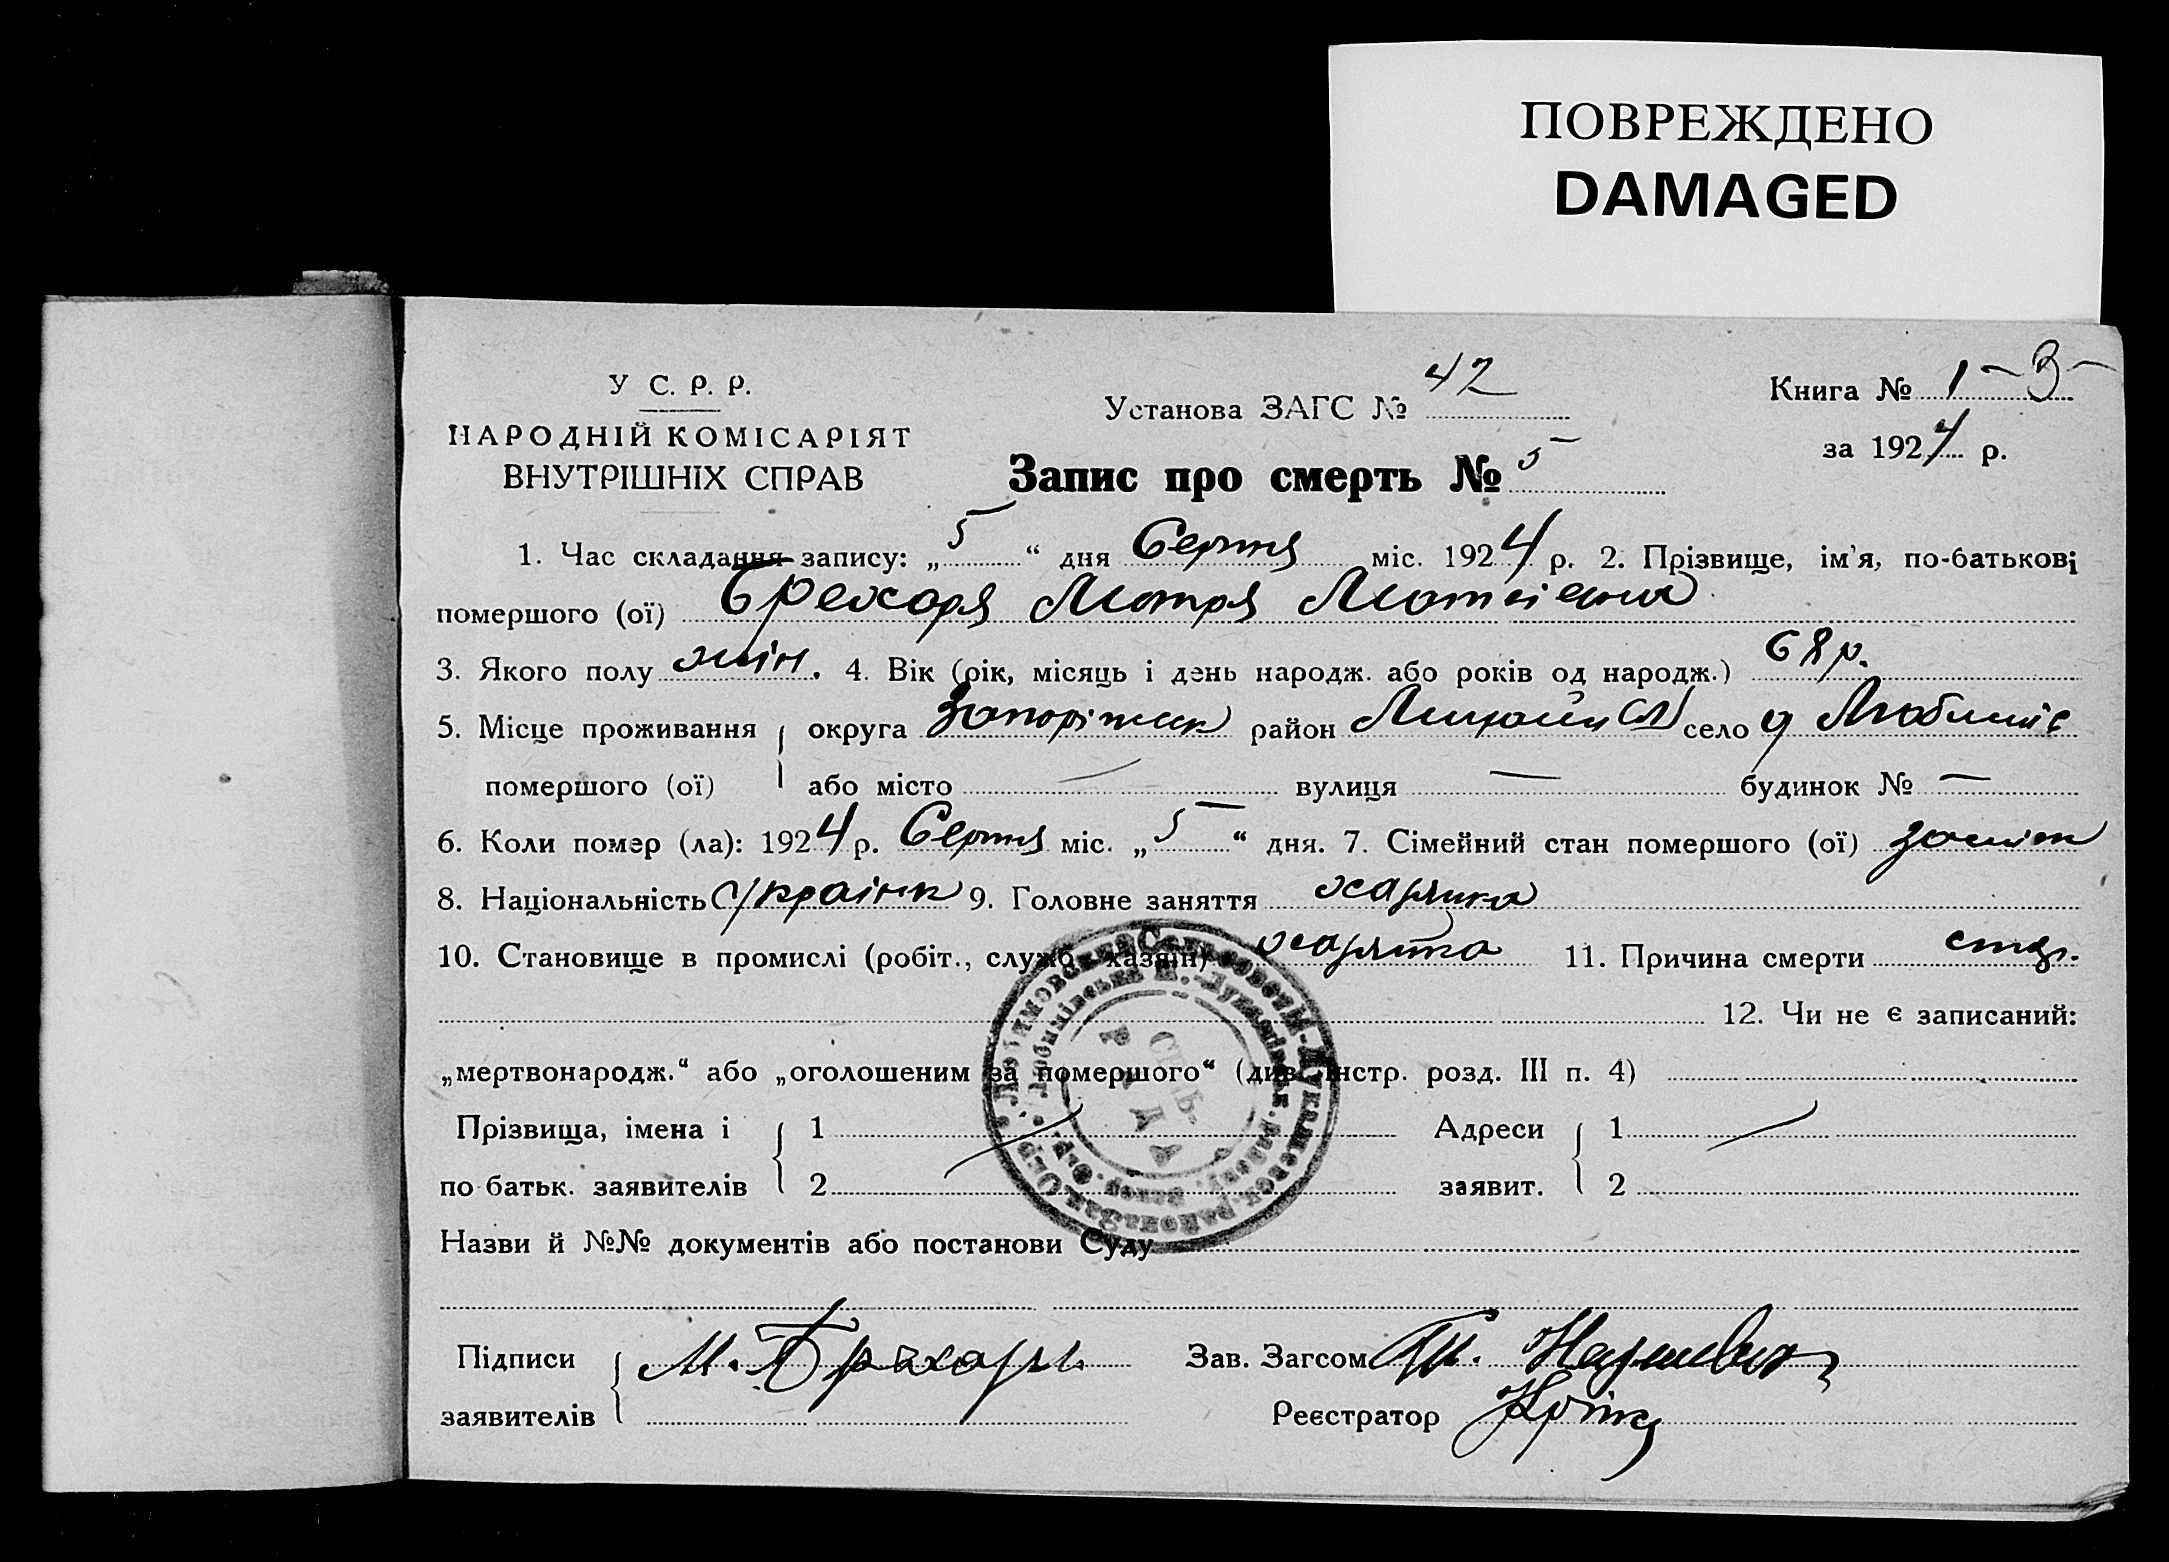 ПОВРЕЖДЕНО
DAMAGED
У С. Р. Р.
НАРОДНІЙ КОМІСАРІЯТ
ВНУТРІШНІХ СПРАВ
Установа ЗАГС № 42
Книга № 1-3-
за 1924 р.
Запис про смерть № 5
1. Час складання запису: „5“ дня Серпня міс. 1924 р. 2. Прізвище, ім'я, по-батькові
помершого (ої) Брехаря Мотря
3. Якого полу жін. 4. Вік (рік, місяць і день народж. або років од народж.) 68 р.
5. Місце проживання округа Запоріжск район село
помершого (ої) або місто — вулиця — будинок № —
6. Коли помер (ла): 1924 р. Серпня міс. „5“ дня. 7. Сімейний стан помершого (ої)
8. Національність Українк 9. Головне заняття
10. Становище в промислі (робіт., служб., хазяїн) 11. Причина смерти
12. Чи не є записаний:
„мертвонародж.“ або „оголошеним за помершого“ (див. інстр. розд. III п. 4)
Прізвища, імена і 1 Адреси 1
по батьк. заявителів 2 заявит. 2
Назви й №№ документів або постанови Суду
Підписи М. Брахаря Зав. Загсом
заявителів Реєстратор
СІЛЬ-
РАДА